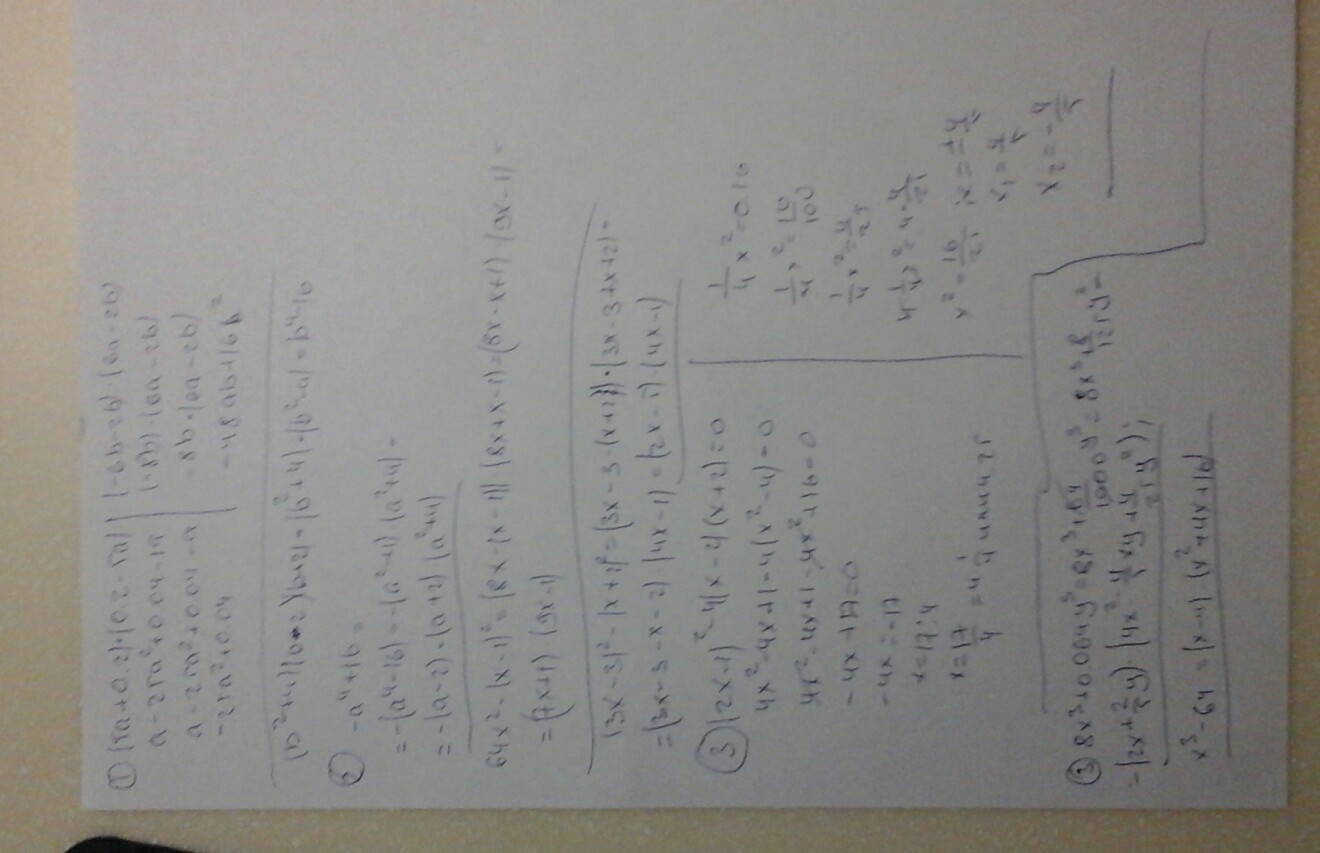 ① (5a+0.2)(0.2-5a)
a-25a²+0.04-1a
a-25a²+0.04-a
-25a²+0.04
(-6b-2b)·(6a-2b)
(-8b)·(6a-2b)
-8b·(6a-2b)
-48ab+16b²
(b²+4)(b-2)(b+2)=(b²+4)·(b²-4)=b⁴-16
②
-a⁴+16=
=-(a⁴-16)=-(a²-4)(a²+4)=
=-(a-2)·(a+2)(a²+4)
64x²-(x-1)²=(8x-(x-1))(8x+x-1)=(8x-x+1)·(9x-1)=
=(7x+1)(9x-1)
(3x-3)²-(x+2)²=(3x-3-(x+2))·(3x-3+x+2)=
=(3x-3-x-2)·(4x-1)=(2x-5)·(4x-1)
③ (2x-1)²-4(x-2)(x+2)=0
4x²-4x+1-4(x²-4)=0
4x²-4x+1-4x²+16=0
-4x+17=0
-4x=-17
x=17:4
x=17/4=4 1/4 или 4,25
1/4x²=0.16
1/4x²=16/100
1/4x²=4/25
4·1/4x²=4·4/25
x²=16/25 ; x=±4/5
x₁=4/5
x₂=-4/5
③ 8x³+0.064y³=8x³+64/1000y³=8x³+8/125y³=
=(2x+2/5y)·(4x²-4/5xy+4/25y²);
x³-64=(x-4)(x²+4x+16)